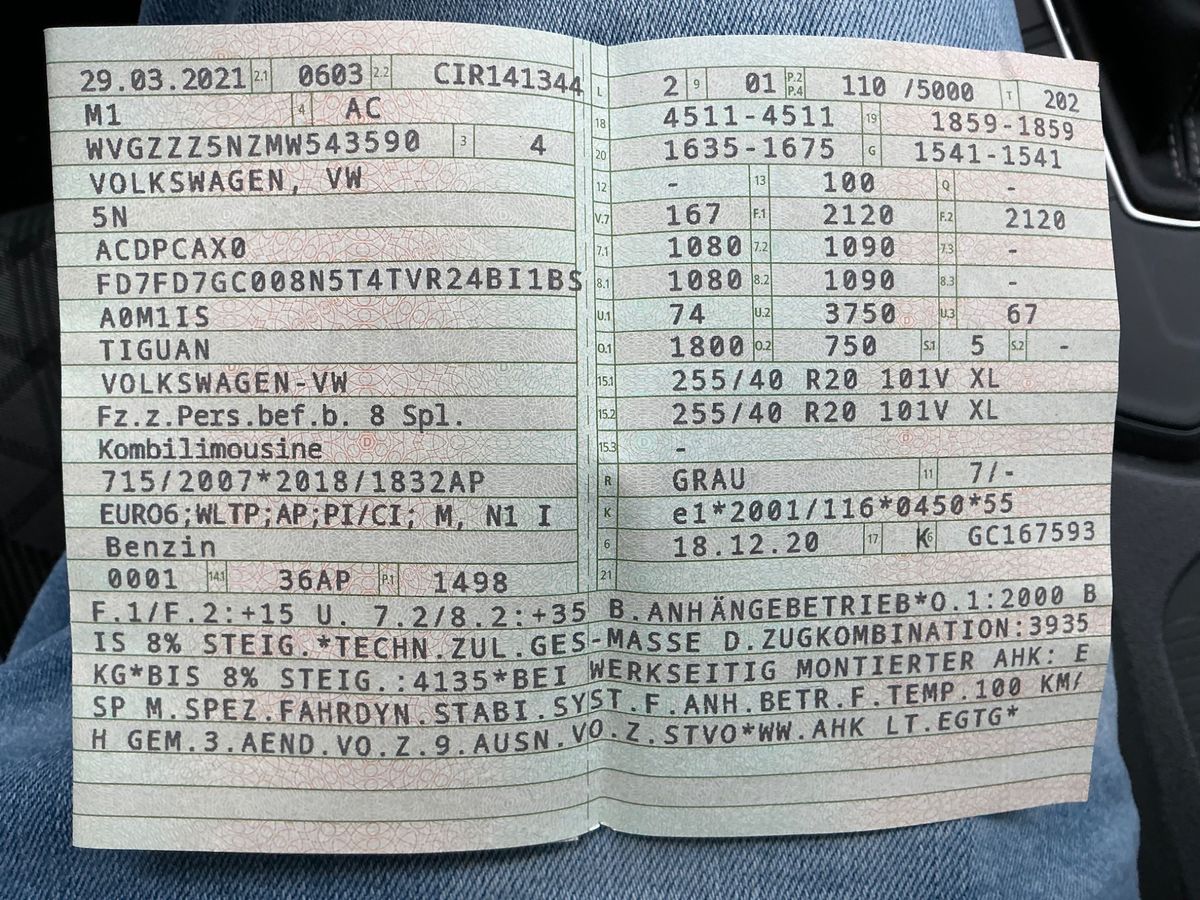 29.03.2021 2.1 0603 2.2 CIR141344
M1 4 AC
WVGZZZ5NZMW543590 3 4
VOLKSWAGEN, VW
5N
ACDPCAX0
FD7FD7GC008N5T4TVR24BI1BS
A0M1IS
TIGUAN
VOLKSWAGEN-VW
Fz.z.Pers.bef.b. 8 Spl.
Kombilimousine
715/2007*2018/1832AP
EURO6;WLTP;AP;PI/CI; M, N1 I
Benzin
0001 14.1 36AP P.1 1498
L 2 9 01 P.2 P.4 110 /5000 T 202
18 4511-4511 19 1859-1859
20 1635-1675 G 1541-1541
12 - 13 100 Q -
V.7 167 F.1 2120 F.2 2120
7.1 1080 7.2 1090 7.3 -
8.1 1080 8.2 1090 8.3 -
U.1 74 U.2 3750 U.3 67
O.1 1800 O.2 750 S.1 5 S.2 -
15.1 255/40 R20 101V XL
15.2 255/40 R20 101V XL
15.3 -
R GRAU 11 7/-
K e1*2001/116*0450*55
6 18.12.20 17 K 16 GC167593
21
F.1/F.2:+15 U. 7.2/8.2:+35 B.ANHÄNGEBETRIEB*O.1:2000 B
IS 8% STEIG.*TECHN.ZUL.GES-MASSE D.ZUGKOMBINATION:3935
KG*BIS 8% STEIG.:4135*BEI WERKSEITIG MONTIERTER AHK: E
SP M.SPEZ.FAHRDYN.STABI.SYST.F.ANH.BETR.F.TEMP.100 KM/
H GEM.3.AEND.VO.Z.9.AUSN.VO.Z.STVO*WW.AHK LT.EGTG*